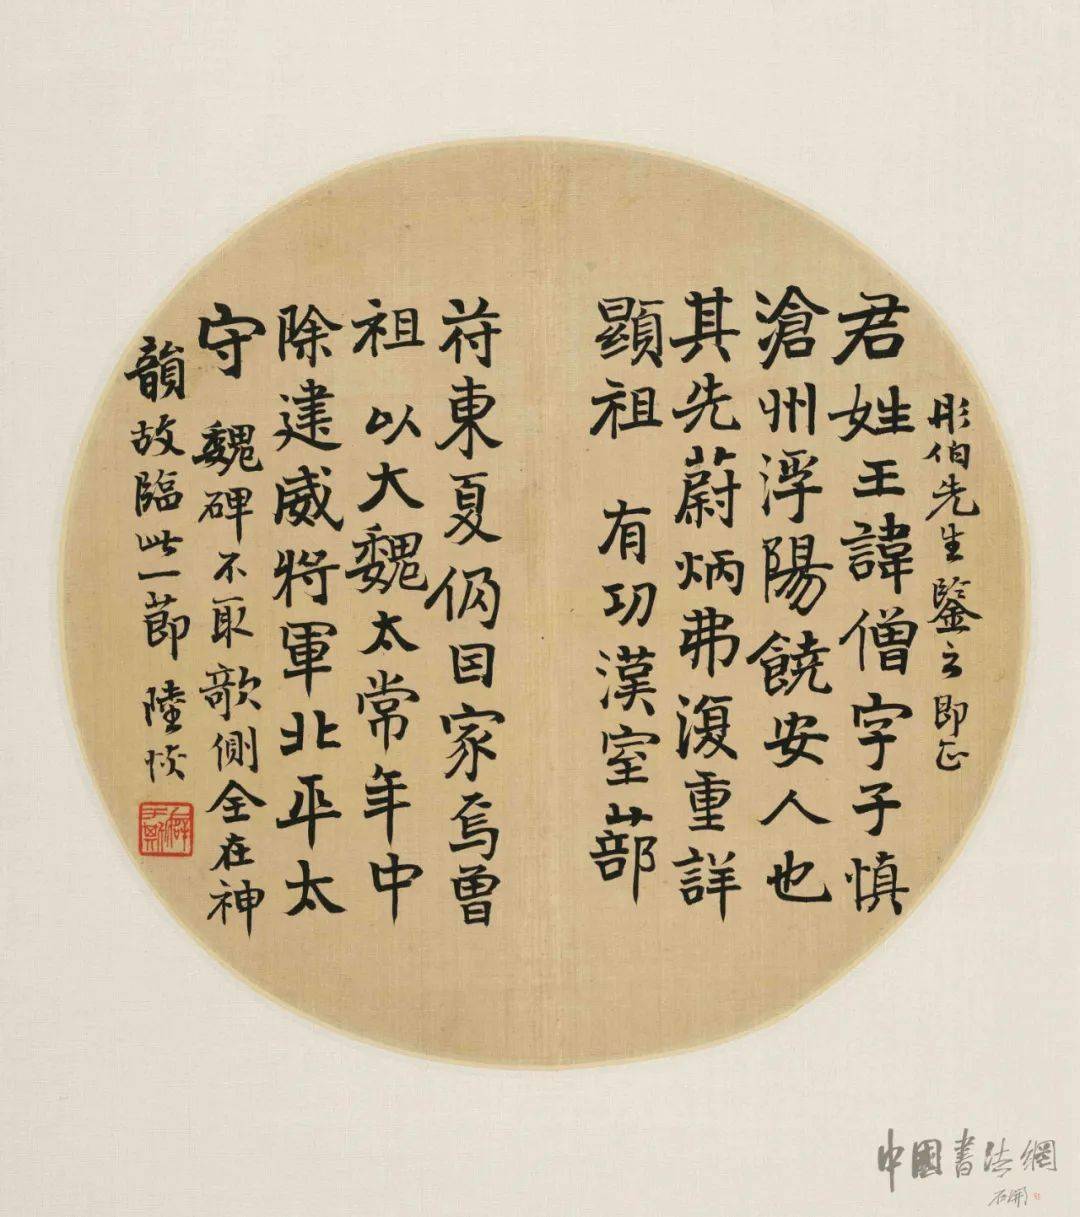 彤伯先生鑒之即正
君姓王諱僧字子慎
滄州浮陽饒安人也
其先蔚炳弗復重詳
顯祖 有功漢室蔀
苻東夏仍囯家焉曾
祖 以大魏太常年中
除建威將軍北平太
守 魏碑不取欹側全在神
韻故臨此一節 陸恢
中國書法網